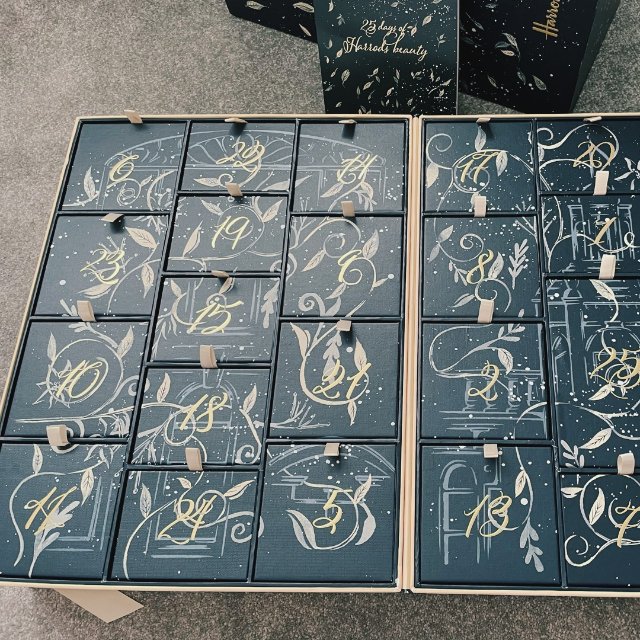 25 days of
Harrods beauty
Harrods
6
22
14
17
20
23
19
9
8
1
10
15
21
2
25
18
11
24
5
13